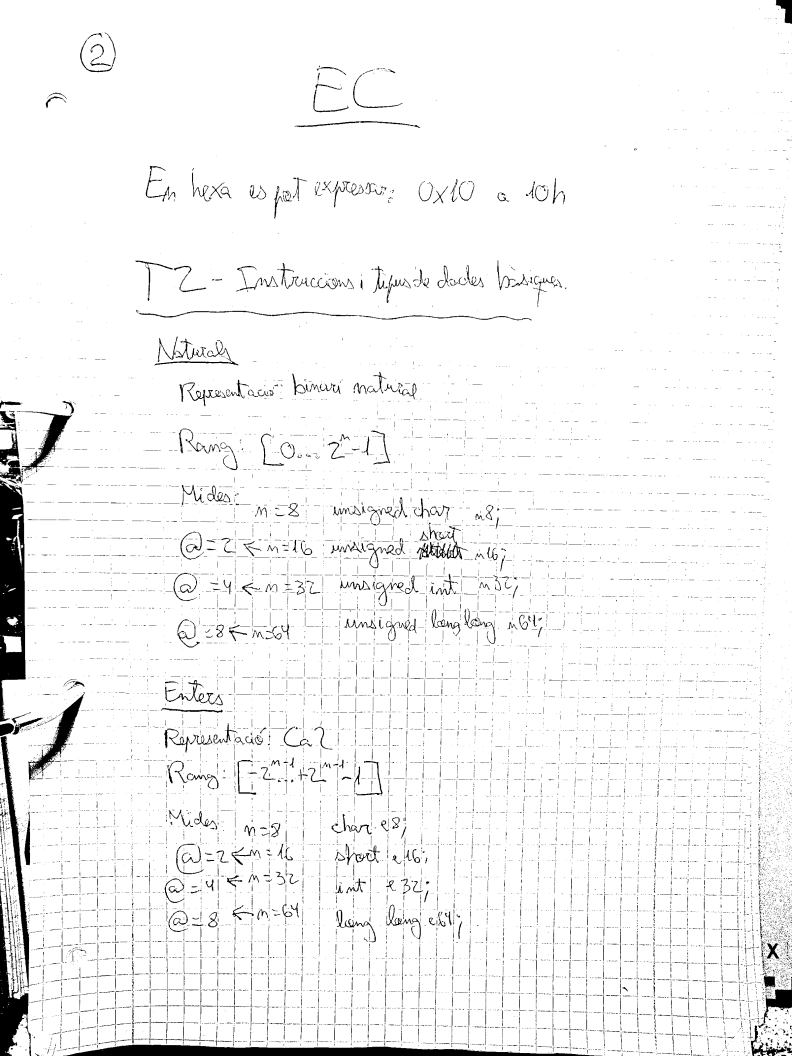 2
EC
En hexa es pot expressar: 0x10 o 10h
T2 - Instruccions i tipus de dades bàsiques.
Naturals
Representació: binari natural
Rang: [0... 2^n-1]
Mides:
n=8 unsigned char n8;
@=2 ← n=16 unsigned short n16;
@=4 ← n=32 unsigned int n32;
@=8 ← n=64 unsigned long long n64;
Enters
Representació: Ca2
Rang: [-2^n-1...+2^n-1-1]
Mides: n=8 char e8;
@=2 ← n=16 short e16;
@=4 ← n=32 int e32;
@=8 ← n=64 long long e64;
X